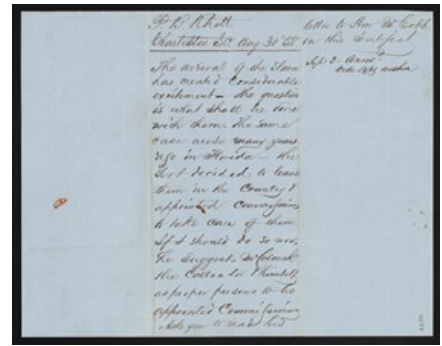 P. B. Rhett
Charleston SC. Aug 30 '58
The arrival of the Slaves
has created Considerable
excitement – the question
is what shall be done
with them. The same
case arose many years
ago in Florida – the
Govt decided to leave
them in the Country &
appointed Commissioners
to take care of them
if it should do so now.
He Suggests
the Collector & himself
as proper persons to be
appointed Commissioners
Asks you to read his
letter to Hon Mr Cobb
on this Subject
Sept 2. Answd